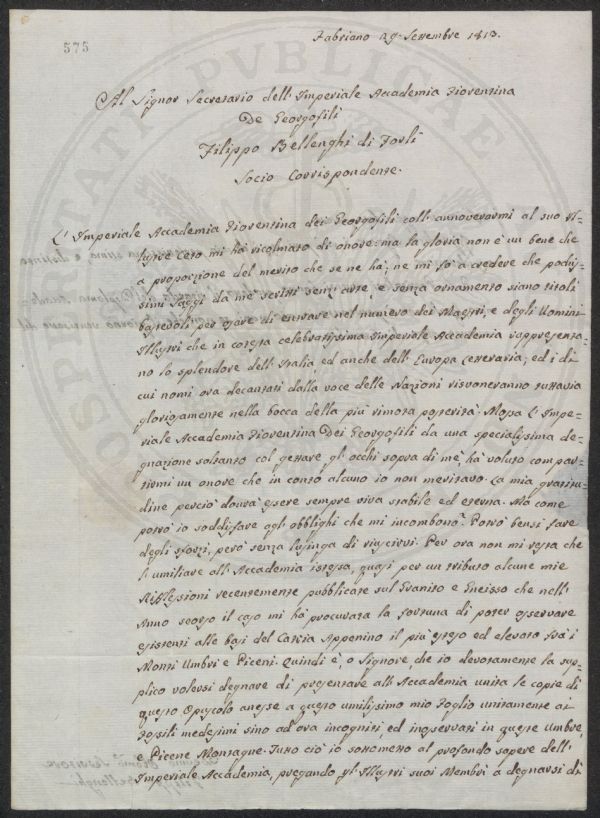 575
Fabriano 29. Settembre 1813.
Al Signor Secretario dell' Imperiale Accademia Fiorentina
De Georgofili
Filippo Bellenghi di Forlì
Socio Corrispondente.
L' Imperiale Accademia Fiorentina dei Georgofili coll' annoverarmi al suo il-
lustre Ceto mi hà ricolmato di onore: ma la gloria non è un bene che
a proporzione del merito che se ne hà; ne mi fò a credere che pochis-
simi saggi da me scritti senz' arte, e senza ornamento siano titoli
bastevoli per osare di entrare nel numero dei Maestri, e degli Uomini
Illustri che in cotesta celebratissima Imperiale Accademia rappresenta-
no lo splendore dell' Italia, ed anche dell' Europa Letteraria; ed i di
cui nomi ora decantati dalla voce delle Nazioni risuoneranno tuttavia
gloriosamente nella bocca della più rimota posterità. Mossa l' Impe-
riale Accademia Fiorentina Dei Georgofili da una specialissima de-
gnazione soltanto col gettare gl' occhi sopra di mè, hà voluto compar-
tirmi un onore che in conto alcuno io non meritavo. La mia gratitu-
dine perciò dovrà essere sempre viva stabile ed eterna. Ma come
potrò io soddisfare agl' obblighi che mi incombono? Potrò bensì fare
degli sforzi, però senza lusinga di riuscirvi. Per ora non mi resta che
l' umiliare all' Accademia istessa, quasi per un tributo alcune mie
Riflessioni recentemente pubblicate sul Granito e Gneisso che nell'
Anno scorso il caso mi hà procurata la fortuna di poter osservare
esistenti alle basi del Catria Appenino il più esteso ed elevato frà i
Monti Umbri e Piceni. Quindi è, o Signore che io devotamente la sup-
plico volersi degnare di presentare all' Accademia unita le copie di
questo Opuscolo annesse a questo umilissimo mio foglio unitamente ai
Fossili medesimi sino ad ora incogniti ed inosservati in queste Umbre,
e Picene Montagne. Tutto ciò io sottometto al profondo sapere dell'
Imperiale Accademia, pregando gl' Illustri suoi Membri a degnarsi di